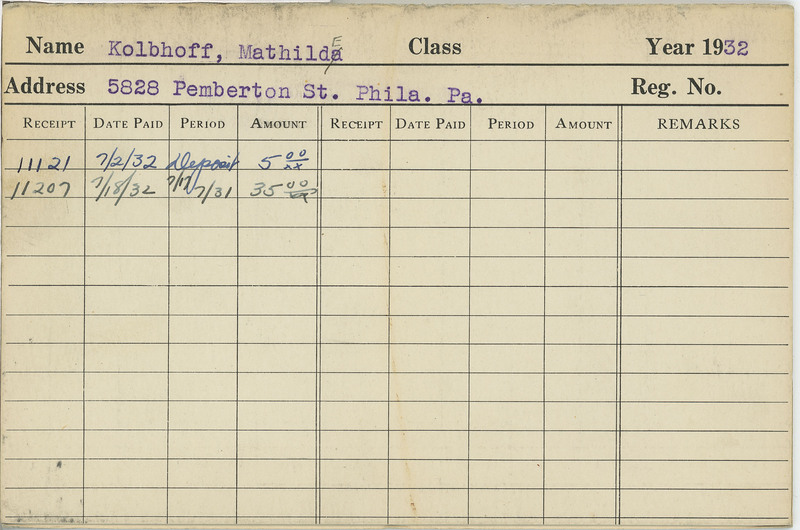 Name Kolbhoff, Mathilde Class Year 1932
Address 5828 Pemberton St. Phila. Pa. Reg. No.
RECEIPT DATE PAID PERIOD AMOUNT RECEIPT DATE PAID PERIOD AMOUNT REMARKS
11121 7/2/32 Deposit 5 00/xx
11207 7/18/32 7/17 7/31 35 00/xx